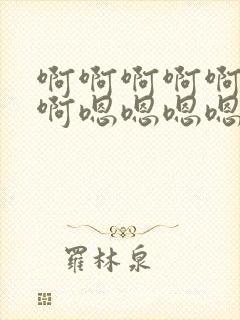 啊啊啊啊啊
啊嗯嗯嗯嗯
羅林泉